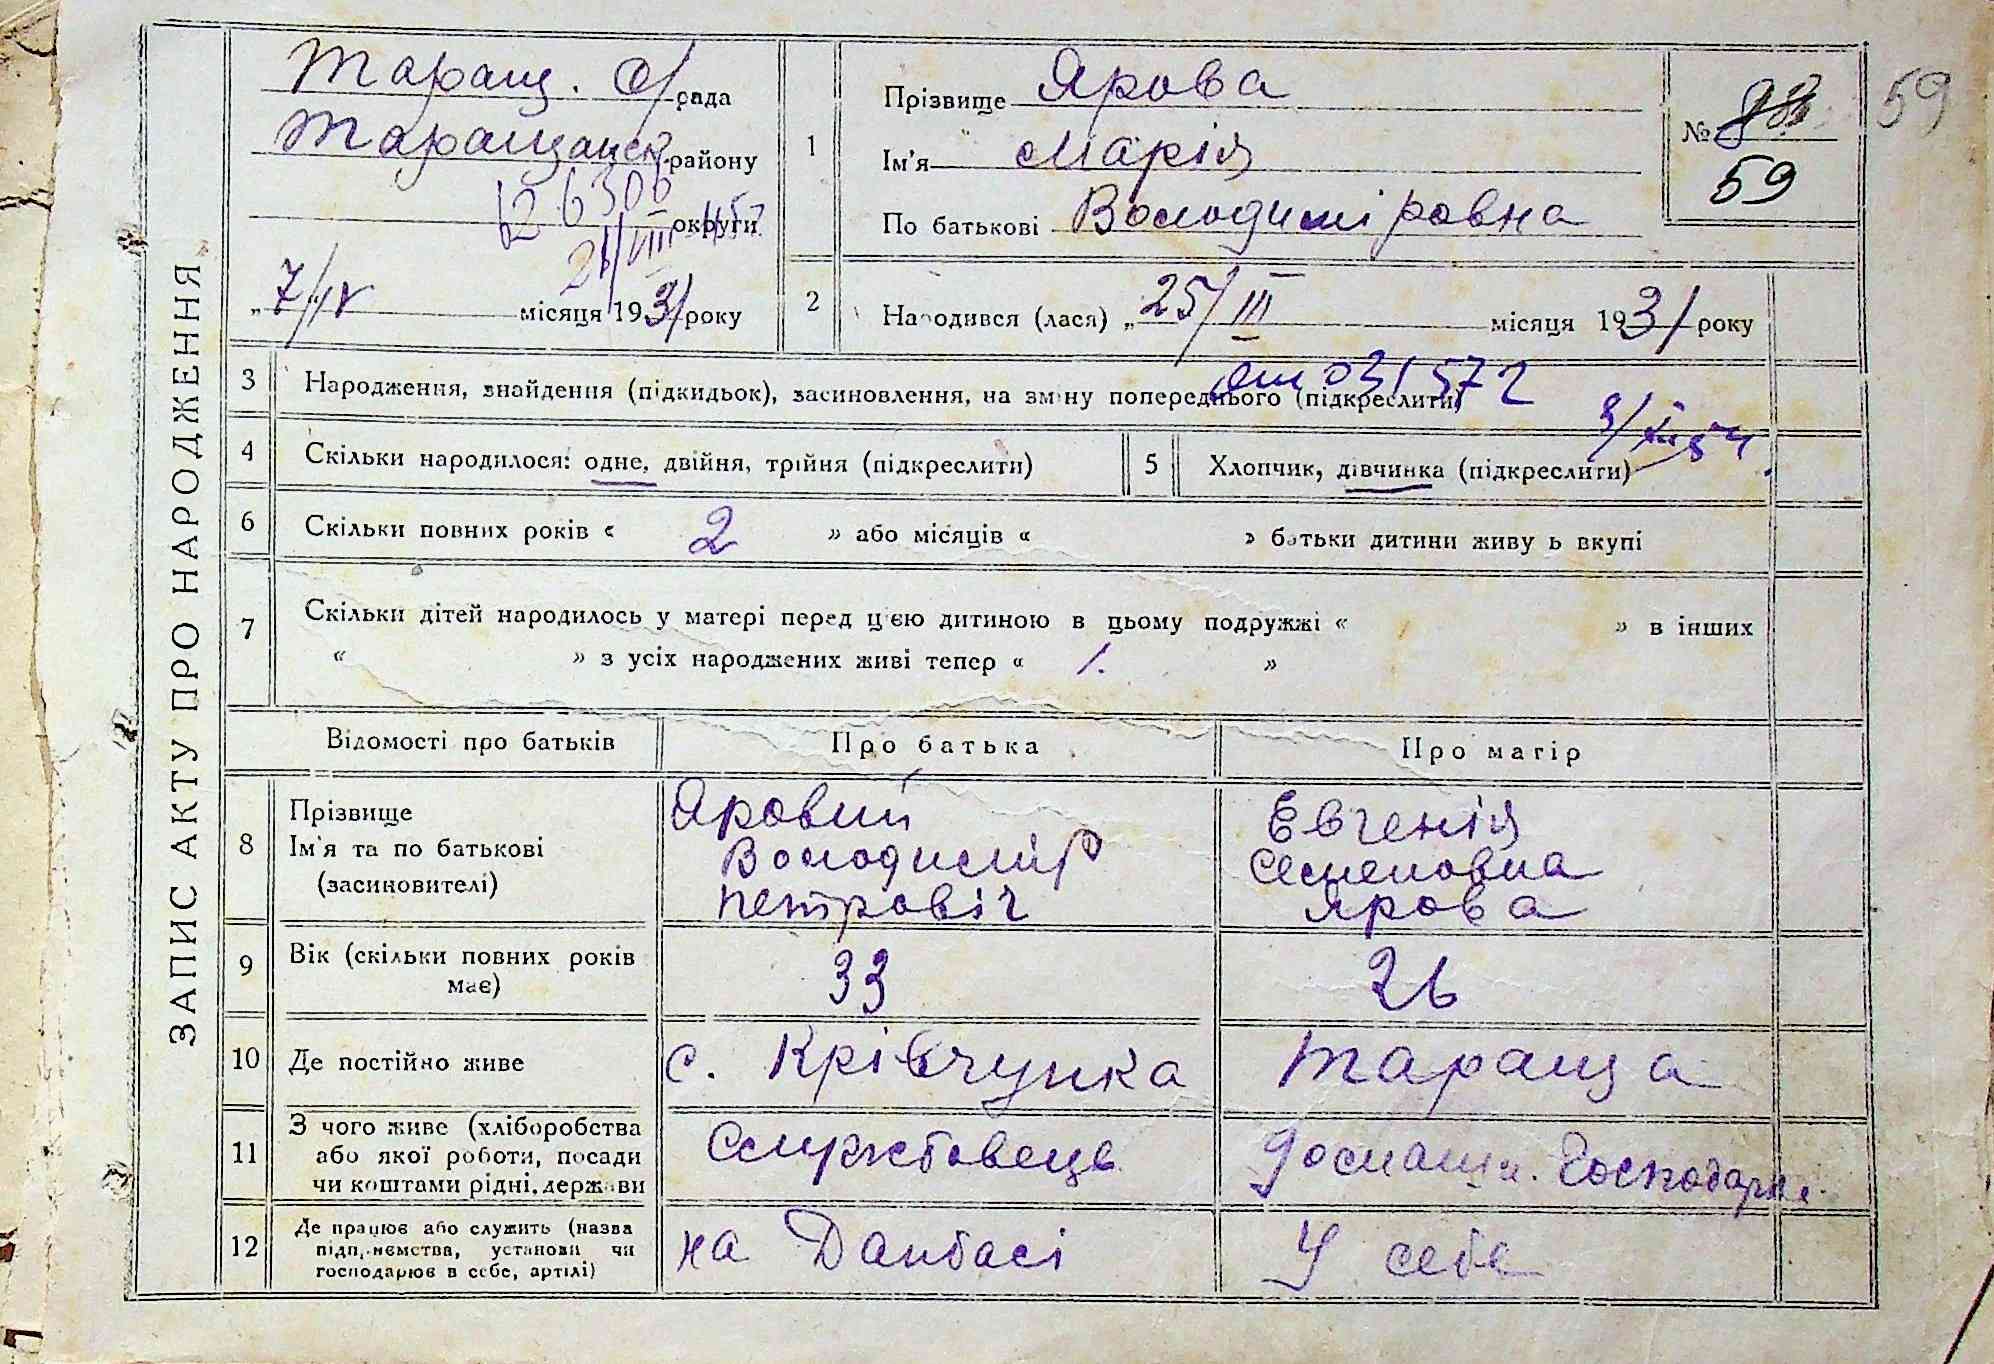 ЗАПИС АКТУ ПРО НАРОДЖЕННЯ
Таращ. рада
Таращанск. району
округи
„7/IV місяця 1931 року
1
Прізвище Ярова
Ім'я Марія
По батькові Володиміровна
№
59
59
2
Народився (лася) „25/III місяця 1931 року
3
Народження, знайдення (підкидьок), засиновлення, на зміну попереднього (підкреслити)
031572
4
Скільки народилося: одне, двійня, трійня (підкреслити)
5
Хлопчик, дівчинка (підкреслити)
6
Скільки повних років « 2 » або місяців « » батьки дитини живуть вкупі
7
Скільки дітей народилось у матері перед цією дитиною в цьому подружжі « » в інших
« » з усіх народжених живі тепер « 1. »
Відомості про батьків Про батька Про матір
8
Прізвище
Ім'я та по батькові
(засиновителі)
Яровий
Володимір
Петровіч
Евгенія
Семеновна
Ярова
9
Вік (скільки повних років
має)
33
26
10
Де постійно живе
с. Крівчунка
Тараща
11
З чого живе (хліборобства
або якої роботи, посади
чи коштами рідні, держави
Службовець
Домашн. Господарка
12
Де працює або служить (назва
підприємства, установи чи
господарює в себе, артілі)
на Данбасі
У себе